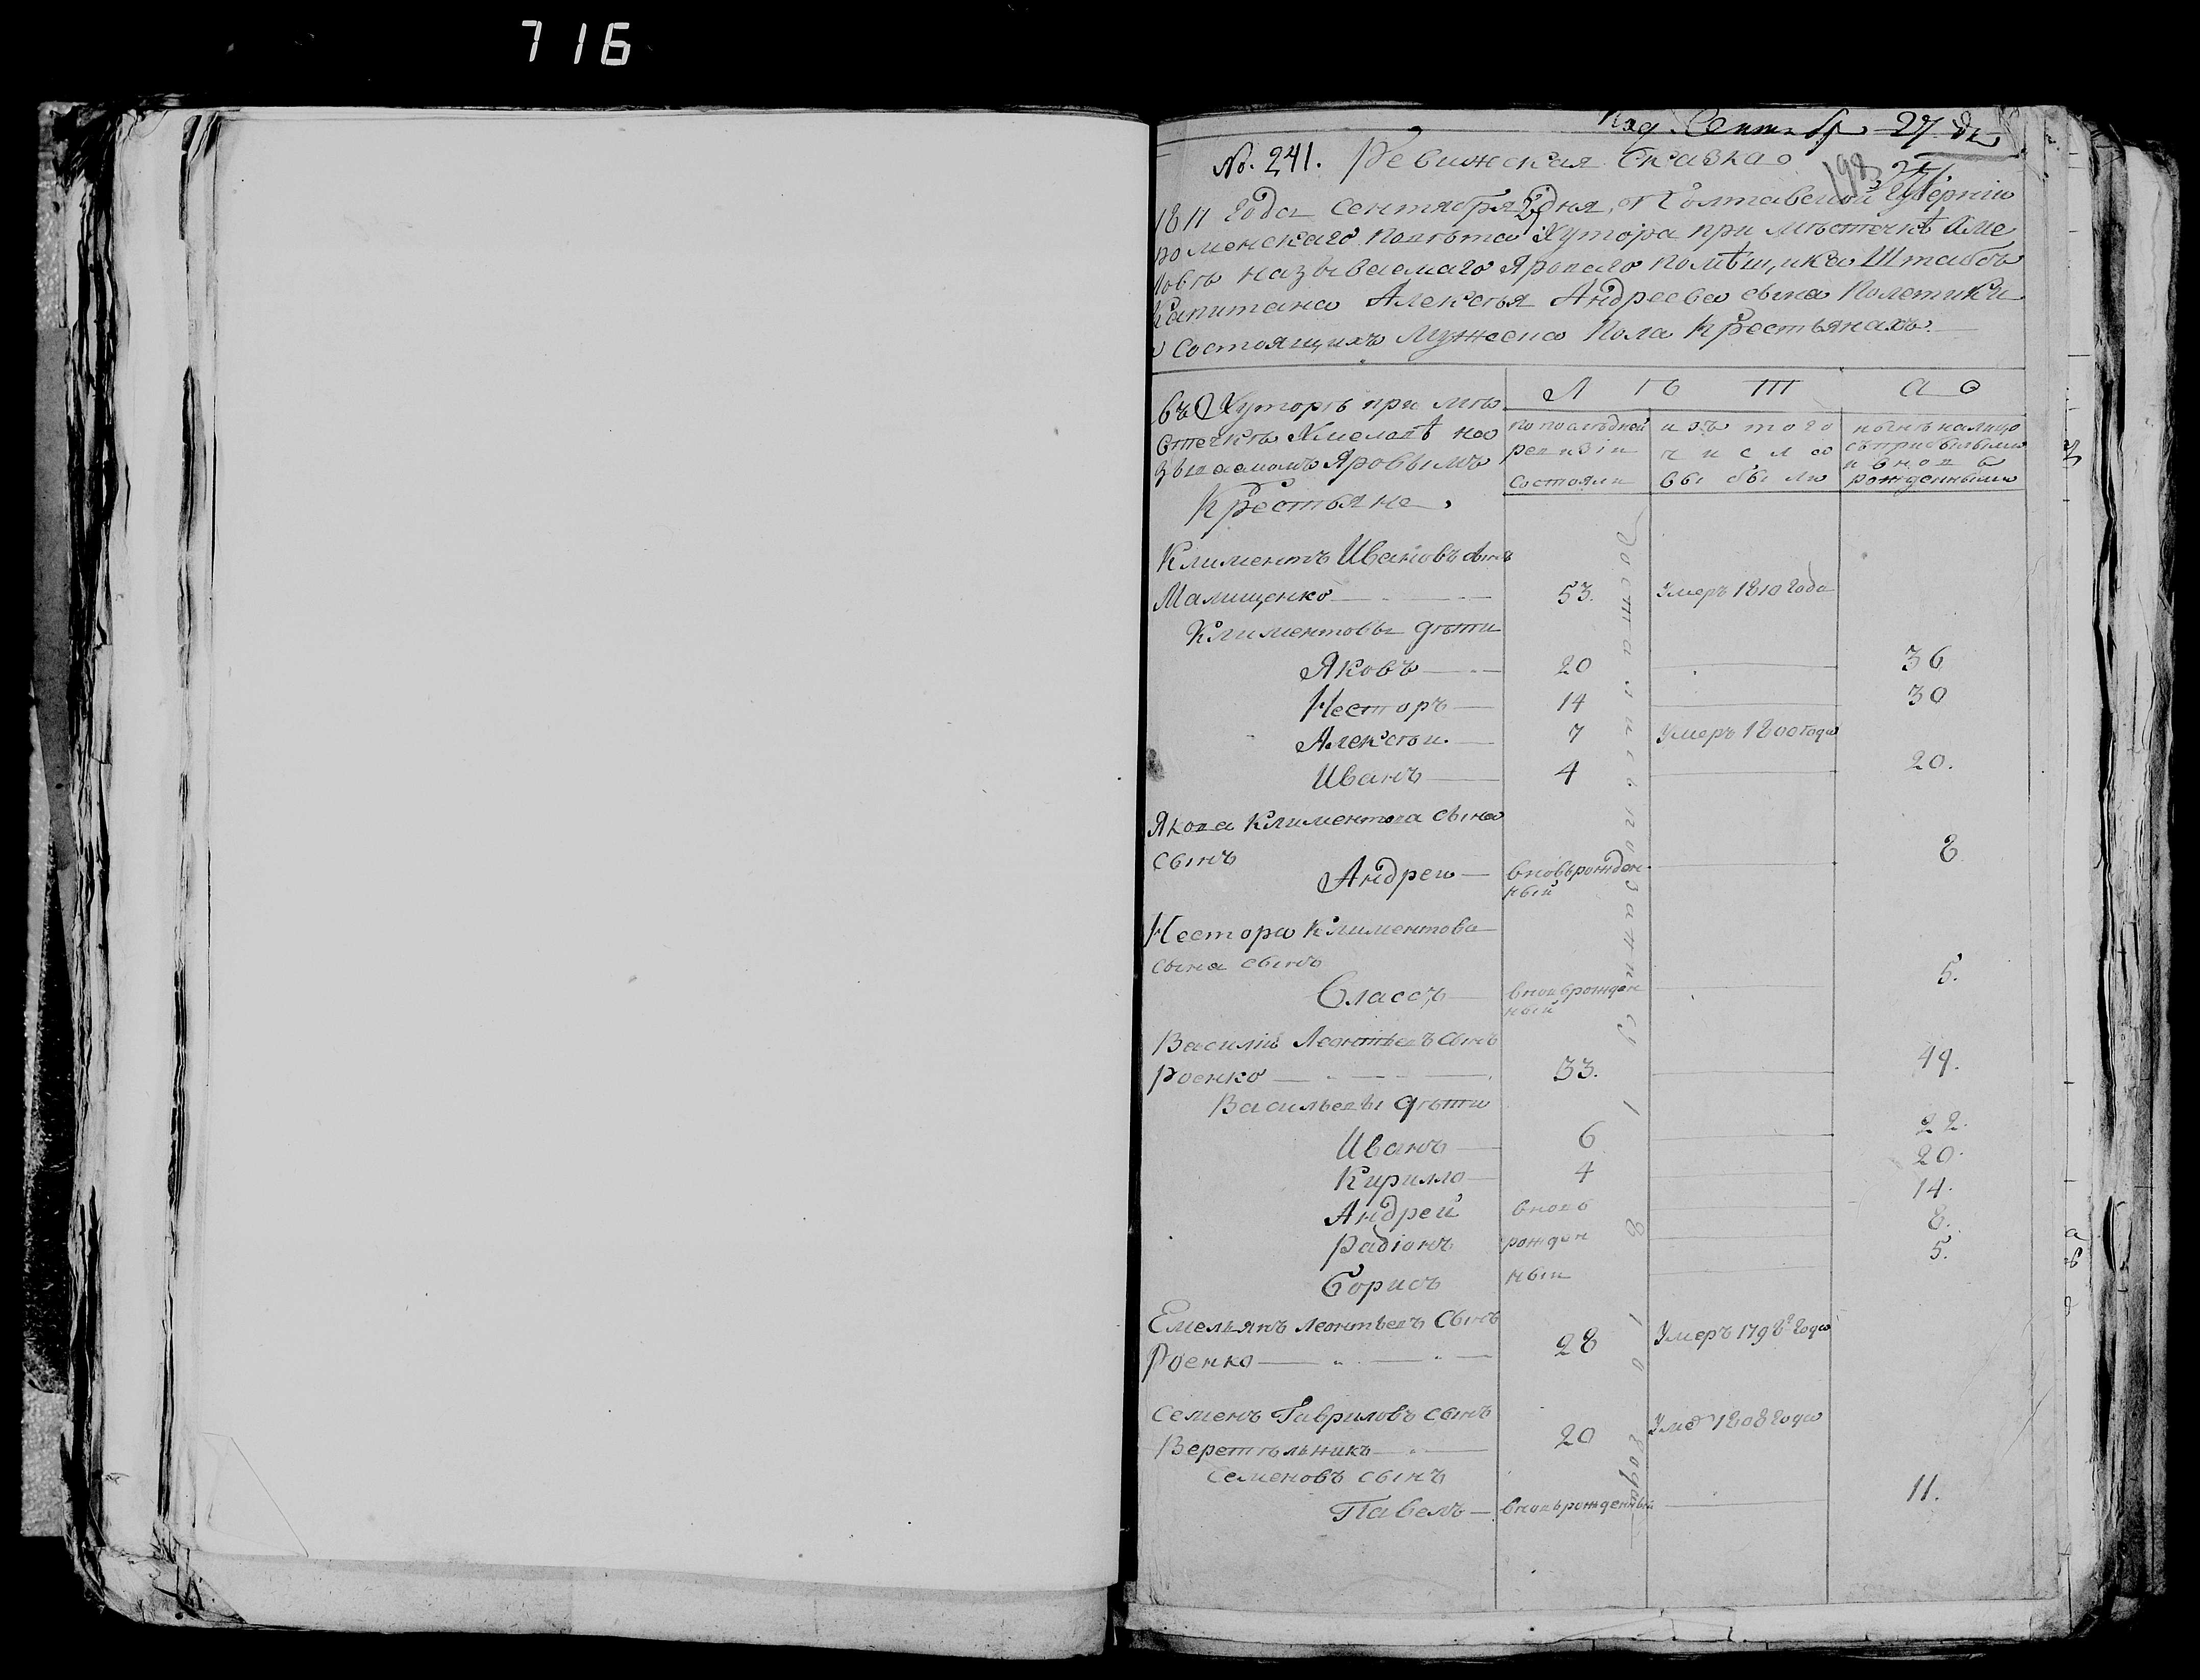 716
Под. Сентябр 27 дн
No. 241. Ревижская Сказка
198
1811 года Сентября дня, Полтавской Губернiи
роменскаго повѣта Хутора при мѣстечкѣ Хме
ловъ называемаго Яроваго помѣщика Штабсъ
Капитана Алексѣя Андреева сына Полетики
о состоящихъ мужеска пола крестьянахъ
въ Хуторѣ при мѣ
стечкѣ Хмеловѣ на
зываемомъ Яровымъ
Крестьяне
Л Ѣ Т А
по послѣдней ревизiи состояли
изъ того числа выбыли
нынѣ налицо съ прибылыми и вновь рожденными
Климентъ Ивановъ сынъ
Малищенко 53. Умеръ 1810 года
Климентовы дѣти
Яковъ 20 36
Несторъ 14 30
Алексѣи 7 Умеръ 1800 года
Иванъ 4 20.
Якова Климентова сына
сынъ
Андреи вновьрожденный 8
Нестора Климентова
сына сынъ
Власъ вновьрожденный 5.
Василiй Леонтьевъ сынъ
Роенко 33. 49.
Васильевы дѣти
Иванъ 6 22.
Кирилло 4 20.
Андрей вновь 14.
Радiонъ рожден 8.
Борисъ ныи 5.
Емельянъ Леонтьевъ сынъ
Роенко 28 Умеръ 1798 года
Семенъ Гавриловъ сынъ
Веретѣльникъ 20 Умеръ 1808 года
Семеновъ сынъ
Павелъ вновьрожденный 11.
года